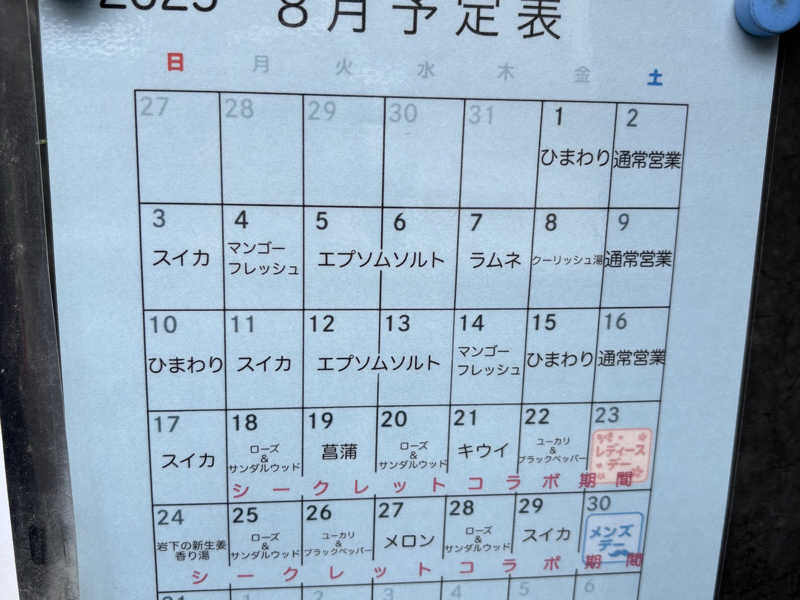 2025 8月予定表
日 月 火 水 木 金 土
27 28 29 30 31 1 2
ひまわり 通常営業
3 4 5 6 7 8 9
スイカ マンゴーフレッシュ エプソムソルト ラムネ クーリッシュ湯 通常営業
10 11 12 13 14 15 16
ひまわり スイカ エプソムソルト マンゴーフレッシュ ひまわり 通常営業
17 18 19 20 21 22 23
スイカ ローズ&サンダルウッド 菖蒲 ローズ&サンダルウッド キウイ ユーカリ&ブラックペッパー レディースデー
シークレットコラボ期間
24 25 26 27 28 29 30
岩下の新生姜香り湯 ローズ&サンダルウッド ユーカリ&ブラックペッパー メロン ローズ&サンダルウッド スイカ メンズデー
シークレットコラボ期間
31 1 2 3 4 5 6